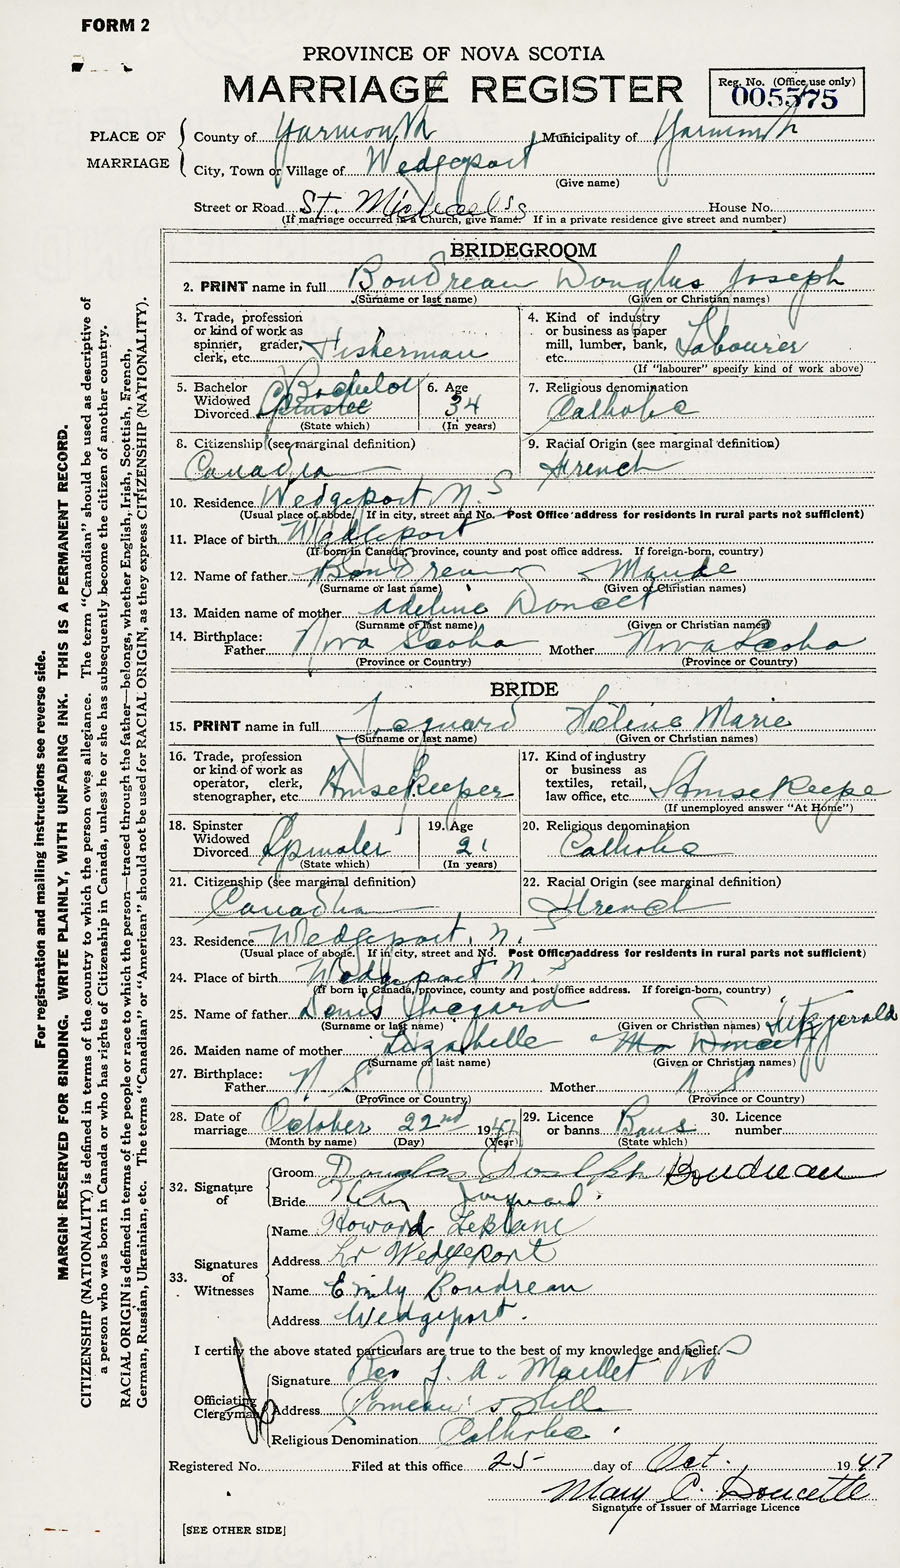 FORM 2
PROVINCE OF NOVA SCOTIA
MARRIAGE REGISTER
Reg. No. (Office use only)
005575
PLACE OF MARRIAGE
County of Yarmouth Municipality of Yarmouth
City, Town or Village of Wedgeport
(Give name)
Street or Road St. Michael's House No.
(If marriage occurred in a Church, give name. If in a private residence give street and number)
BRIDEGROOM
2. PRINT name in full Boudreau Douglas Joseph
(Surname or last name) (Given or Christian names)
3. Trade, profession or kind of work as spinner, grader, clerk, etc. Fisherman
4. Kind of industry or business as paper mill, lumber, bank, etc. Labourer
(If "labourer" specify kind of work above)
5. Bachelor Widowed Divorced Bachelor
(State which)
6. Age 34
(In years)
7. Religious denomination Catholic
8. Citizenship (see marginal definition) Canadian
9. Racial Origin (see marginal definition) French
10. Residence Wedgeport N. S
(Usual place of abode. If in city, street and No. Post Office address for residents in rural parts not sufficient)
11. Place of birth Wedgeport
(If born in Canada, province, county and post office address. If foreign-born, country)
12. Name of father Boudreau Maude
(Surname or last name) (Given or Christian names)
13. Maiden name of mother Adeline Doucet
(Surname or last name) (Given or Christian names)
14. Birthplace:
Father Nova Scotia Mother Nova Scotia
(Province or Country) (Province or Country)
BRIDE
15. PRINT name in full Jacquard Hélène Marie
(Surname or last name) (Given or Christian names)
16. Trade, profession or kind of work as operator, clerk, stenographer, etc. Housekeeper
17. Kind of industry or business as textiles, retail, law office, etc. Housekeepe
(If unemployed answer "At Home")
18. Spinster Widowed Divorced Spinster
(State which)
19. Age 21
(In years)
20. Religious denomination Catholic
21. Citizenship (see marginal definition) Canadian
22. Racial Origin (see marginal definition) French
23. Residence Wedgeport, N.
(Usual place of abode. If in city, street and No. Post Office address for residents in rural parts not sufficient)
24. Place of birth Wedgeport N. S
(If born in Canada, province, county and post office address. If foreign-born, country)
25. Name of father Denis Jacquard
(Surname or last name) (Given or Christian names)
26. Maiden name of mother Lizabelle Fitzgerald
(Surname or last name) (Given or Christian names)
27. Birthplace:
Father N. S Mother N S
(Province or Country) (Province or Country)
28. Date of marriage October 22nd 1947
(Month by name) (Day) (Year)
29. Licence or banns Bans
(State which)
30. Licence number
32. Signature of
Groom Douglas Joseph Boudreau
Bride Jacquard
33. Signatures of Witnesses
Name Howard LeBlanc
Address Lr Wedgeport
Name Emily Boudreau
Address Wedgeport.
I certify the above stated particulars are true to the best of my knowledge and belief.
Officiating Clergyman
Signature Rev J. A. Maillet P.P
Address Comeau's Hill
Religious Denomination Catholic
Registered No. Filed at this office 25 day of Oct. 1947
Mary C. Doucette
Signature of Issuer of Marriage Licence
[SEE OTHER SIDE]
For registration and mailing instructions see reverse side.
MARGIN RESERVED FOR BINDING. WRITE PLAINLY, WITH UNFADING INK. THIS IS A PERMANENT RECORD.
CITIZENSHIP (NATIONALITY) is defined in terms of the country to which the person owes allegiance. The term "Canadian" should be used as descriptive of
a person who was born in Canada or who has rights of Citizenship in Canada, unless he or she has subsequently become the citizen of another country.
RACIAL ORIGIN is defined in terms of the people or race to which the person—traced through the father—belongs, whether English, Irish, Scottish, French,
German, Russian, Ukrainian, etc. The terms "Canadian" or "American" should not be used for RACIAL ORIGIN, as they express CITIZENSHIP (NATIONALITY).